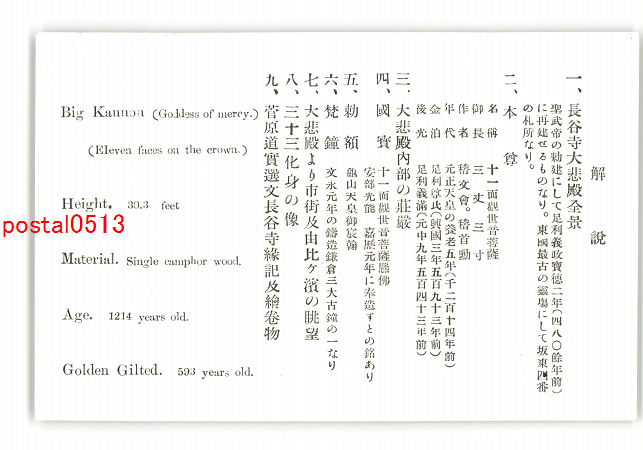 解説
一、長谷寺大悲殿全景
聖武帝の勅建にして足利義政寶德二年(四八〇餘年前)
に再建せるものなり。東國最古の靈場にして坂東四番
の札所なり。
二、本尊
名稱 十一面觀世音菩薩
御長 三丈三寸
作者 稽文會。稽首勳
年代 元正天皇の養老五年(千二百十四年前)
金泊 足利尊氏(興國三年五百九十三年前)
後光 足利義滿(元中九年五百四十三年前)
三、大悲殿內部の莊嚴
四、國寶 十一面觀世音菩薩懸佛
安部光能 嘉歷元年に奉造すとの銘あり
五、勅額 龜山天皇御宸翰
六、梵鐘 文永元年の鑄造鎌倉三大古鐘の一なり
七、大悲殿より市街及由比ヶ濱の眺望
八、三十三化身の像
九、菅原道實選文長谷寺緣記及繪卷物
Big Kannon (Goddess of mercy.)
(Eleven faces on the crown.)
Height. 30.3 feet
Material. Single camphor wood.
Age. 1214 years old.
Golden Gilted. 593 years old.
postal0513